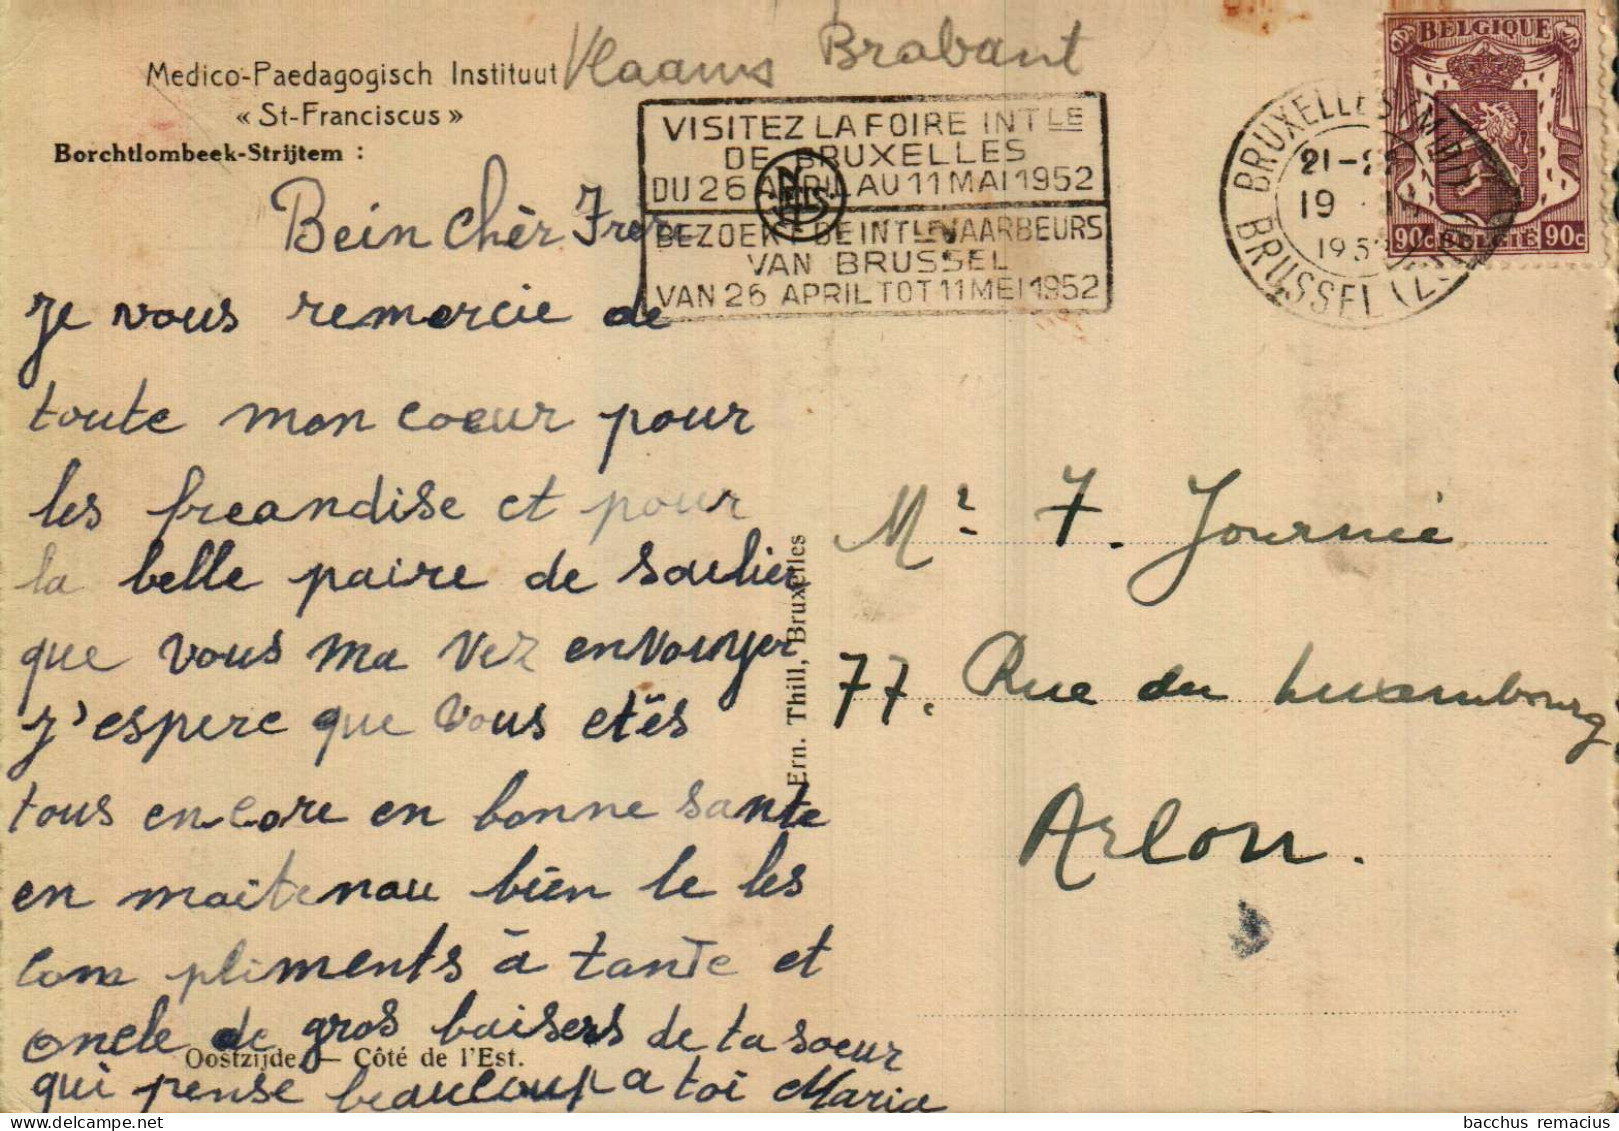 Vlaams Brabant
Medico-Paedagogisch Instituut
« St-Franciscus »
Borchtlombeek-Strijtem :
VISITEZ LA FOIRE INTLE
DE BRUXELLES
DU 26 AVRIL AU 11 MAI 1952
BEZOEKT DE INTLE JAARBEURS
VAN BRUSSEL
VAN 26 APRIL TOT 11 MEI 1952
NELS
BRUXELLES (MIDI)
21-22
19
195
BRUSSEL (ZUID)
BELGIQUE
90c BELGIE 90c
Bein Chèr Frere
je vous remercie de
toute mon coeur pour
les freandise et pour
la belle paire de soulier
que vous ma vez envouyer
j'espere que vous etês
tous encore en bonne sante
en maitenau bien le les
com pliments à tante et
oncle de gros baisers de ta soeur
qui pense beaucoup a toi Maria
Oostzijde. — Côté de l'Est.
Ern. Thill, Bruxelles
Mr. F. Journée
77. Rue du Luxembourg
Arlon.
bacchus remacius